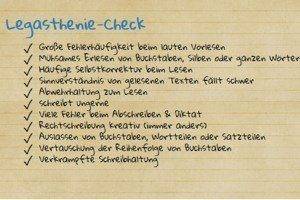 Legasthenie-Check
✓ Große Fehlerhäufigkeit beim lauten Vorlesen
✓ Mühsames Erlesen von Buchstaben, Silben oder ganzen Wörtern
✓ Häufige Selbstkorrektur beim Lesen
✓ Sinnverständnis von gelesenen Texten fällt schwer
✓ Abwehrhaltung zum Lesen
✓ schreibt ungerne
✓ Viele Fehler beim Abschreiben & Diktat
✓ Rechtschreibung kreativ (immer anders)
✓ Auslassen von Buchstaben, Wortteilen oder Satzteilen
✓ Vertauschung der Reihenfolge von Buchstaben
✓ Verkrampfte Schreibhaltung